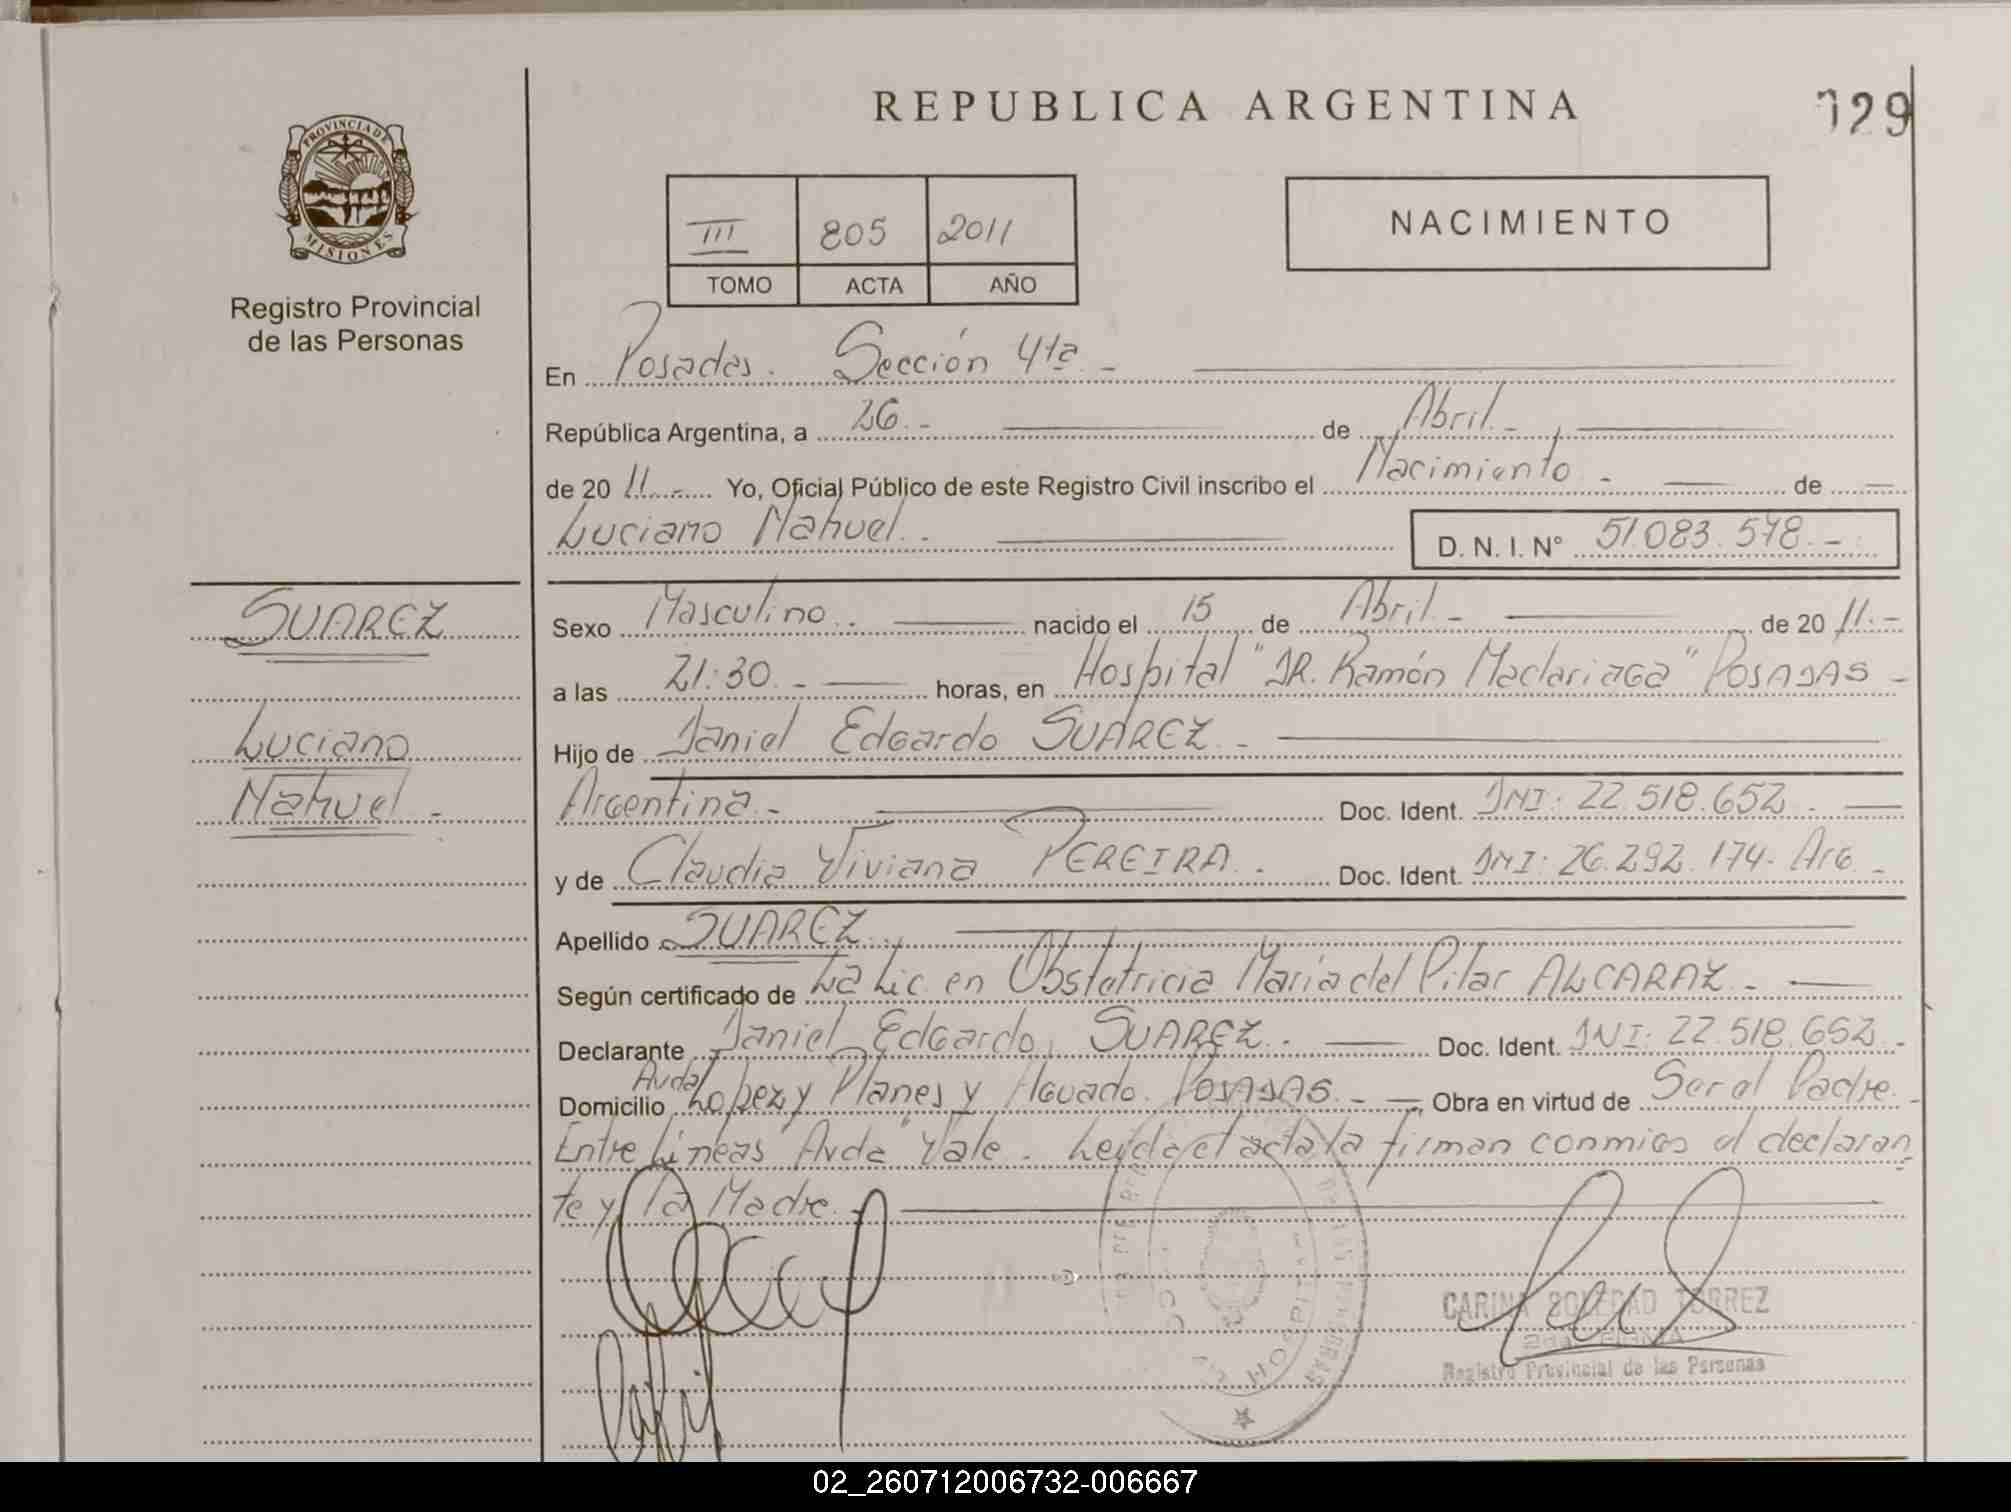 REPUBLICA ARGENTINA
129
PROVINCIA DE
MISIONES
Registro Provincial
de las Personas
III 805 2011
TOMO ACTA AÑO
NACIMIENTO
En Posadas. Sección 4ta.-
República Argentina, a 26.- de Abril.-
de 20 11.- Yo, Oficial Público de este Registro Civil inscribo el Nacimiento - de
Luciano Nahuel.- D. N. I. N° 51.083.578.-
SUAREZ
Luciano
Nahuel.-
Sexo Masculino.- nacido el 15 de Abril.- de 20 11.-
a las 21:30.- horas, en Hospital "DR. Ramón Madariaga" POSADAS -
Hijo de Daniel Edgardo SUAREZ.-
Argentina.- Doc. Ident. DNI: 22.518.652.-
y de Claudia Viviana PEREIRA.- Doc. Ident. DNI: 26.292.174.- Arg.-
Apellido SUAREZ.-
Según certificado de La Lic. en Obstetricia María del Pilar ALCARAZ.-
Declarante Daniel Edgardo SUAREZ.- Doc. Ident. DNI: 22.518.652.-
Avda
Domicilio Lopez y Planes y Aguado. POSADAS.- Obra en virtud de Ser el Padre.-
Entre Líneas "Avda" Vale. - Leída el acta la firman conmigo el declaran
te y la Madre.-
CARINA SOLEDAD TORREZ
2da FIRMA
Registro Provincial de las Personas
02_260712006732-006667